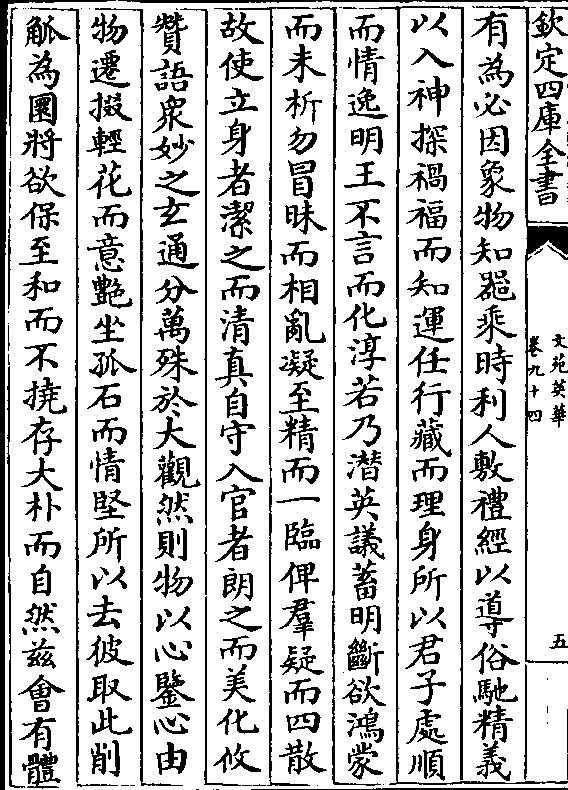 欽定四庫全書
文苑英華
卷九十四
五
有為必因象物知器乘時利人敷禮經以導俗馳精義
以入神探禍福而知運任行藏而理身所以君子處順
而情逸明王不言而化淳若乃潜英議蓄明斷欲鴻蒙
而未析勿冒昧而相亂凝至精而一臨俾羣疑而四散
故使立身者潔之而清真自守入官者朗之而美化攸
贊語衆妙之玄通分萬殊於大觀然則物以心鑒心由
物遷掇輕花而意艷坐孤石而情堅所以去彼取此削
觚為圜將欲保至和而不撓存大朴而自然兹會有體